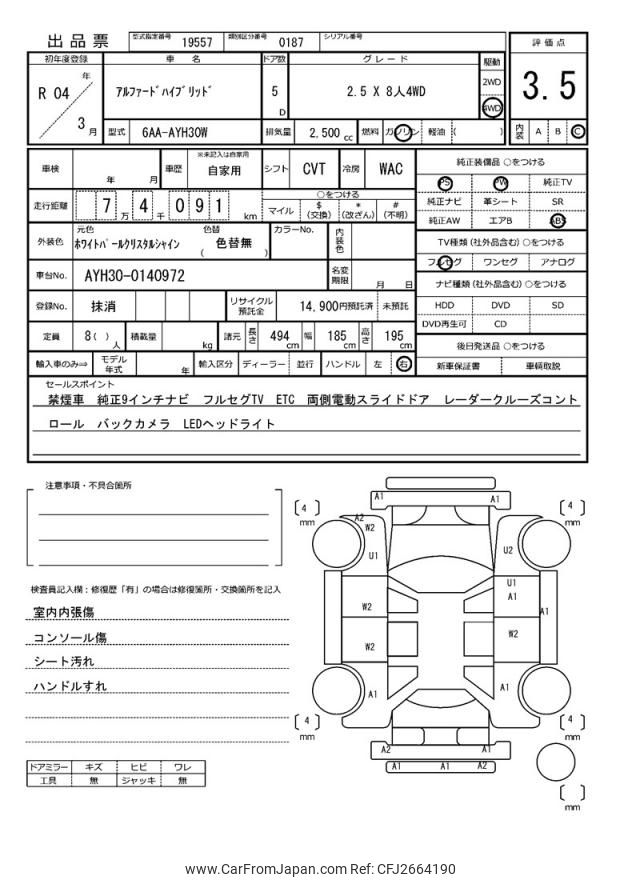 出品票
型式指定番号 19557 類別区分番号 0187 シリアル番号
評価点
3.5
内装 A B C
初年度登録 車名 ドア数 グレード 駆動
R 04 年 3 月
アルファードハイブリッド 5 D 2.5 X 8人4WD
2WD
4WD
型式 6AA-AYH30W 排気量 2,500 cc 燃料 ガソリン 軽油 ( )
車検 年 月 車歴 ※未記入は自家用 自家用 シフト CVT 冷房 WAC
走行距離 7 万 4 千 0 9 1 km
○をつける
マイル $(交換) *(改ざん) #(不明)
外装色 元色 ホワイトパールクリスタルシャイン 色替 ( 色替無 ) カラーNo. 内装色
車台No. AYH30-0140972 名変期限 月 日
登録No. 抹消 リサイクル預託金 14,900円預託済 未預託
定員 8( ) 人 積載量 kg 諸元 長さ 494 cm 幅 185 cm 高さ 195 cm
輸入車のみ⇒ モデル年式 年 輸入区分 ディーラー 並行 ハンドル 左 右
純正装備品 ○をつける
PS PW 純正TV
純正ナビ 革シート SR
純正AW エアB ABS
TV種類 (社外品含む) ○をつける
フルセグ ワンセグ アナログ
ナビ種類 (社外品含む) ○をつける
HDD DVD SD
DVD再生可 CD
後日発送品 ○をつける
新車保証書 車輌取説
セールスポイント
禁煙車 純正9インチナビ フルセグTV ETC 両側電動スライドドア レーダークルーズコント
ロール バックカメラ LEDヘッドライト
注意事項・不具合箇所
検査員記入欄：修復歴「有」の場合は修復箇所・交換箇所を記入
室内内張傷
コンソール傷
シート汚れ
ハンドルすれ
ドアミラー キズ ヒビ ワレ
工具 無 ジャッキ 無
A1 A1
[ 4 ] mm
[ 4 ] mm
A2
W2
U1
U2
U1
A1
A1
W2
W2
W2
A1
A1
[ 4 ] mm
[ 4 ] mm
A2 A1
A1 A1 A2
[ ] mm
www.CarFromJapan.com Ref: CFJ2664190